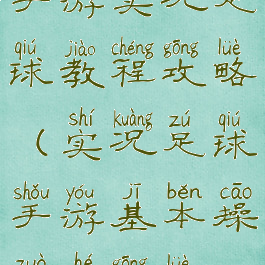 手游实况足
qiú jiào chéng gōng lüè
球教程攻略
shí kuàng zú qiú
（实况足球
shǒu yóu jī běn cāo
手游基本操
zuò hé gōng lüè